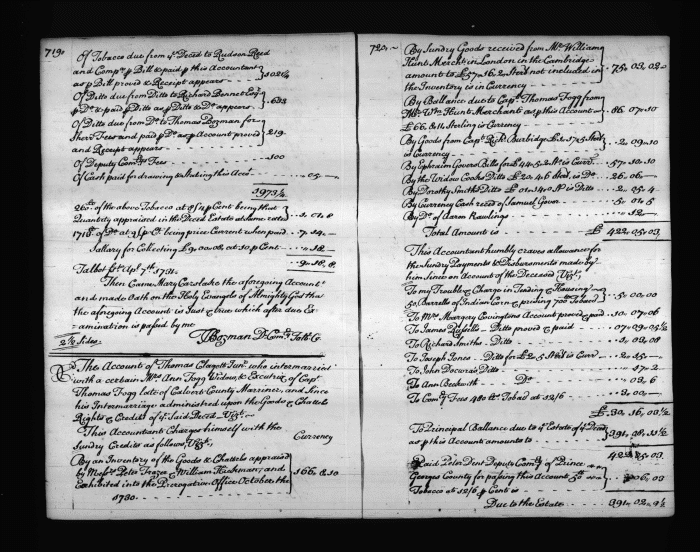 719.
Of Tobacco due from ye Deced to Rudson Reed
and Compa p Bill & paid p this Accountant
as p Bill proved & Receipt appears 1021½
Of Ditto due from Ditto to Richard Bennet Esqr
p Do & paid p Ditto as p Ditto & Do appears 633
Of Ditto due from Do to Thomas Bozman for
Sherr Fees and paid p Do as p Account proved 219.
and Receipt appears
Of Deputy Comry Fees 100
Of Cash paid for drawing & Stating this Acct 05
1973½
260 lb of the above Tobacco at p Cent being that
Quantity appraised in the Deced Estate at same rate 1. 01. 8
1713 lb of Do at p Ct being price Current when paid 7. 14.
Sallary for Collecting £9. 00. 08. at 10 p Cent 18
9. 18. 8.
Talbot Ct Apl 7th. 1731.
Then Came Mary Carslake the aforegoing Accountt
and made Oath on the Holy Evangels of Almighty God tha
the aforegoing Account is Just & true which after due Ex
amination is passed by me
T Bozman D Comry Talb C
2½ Sides
The Account of Thomas Clagett Junr who intermarried
with a certain Mrs Ann Fogg Widow, & Excutrix of Capt
Thomas Fogg Late of Calvert County Marriner, and Since
his Intermarriage administred upon the Goods & Chattels
Rights & Credits of ye Said Deced Vizt
This Accountant Charges himself with the
Sundry Credits as follows, Vizt Currency
By an Inventory of the Goods & Chattels appraised
by Messrs Peter Frazer & William Hickman; and 166. 8. 10
Exhibited into the Prerogation Office October the
1730.
720.
By Sundry Goods received from Mr William
Hunt Mercht in London in the Cambridge
amounts to £57. 16. 2. Sterl not included in 75. 03. 02
the Inventory is in Currency
By Ballance due to Capt Thomas Fogg from
Mr Wm Hunt Merchant as p this Account 86. 07. 10
£66. 8. 11. Sterling is Currency
By Goods from Capt Richd Burbidge £2. 1. 7½ Sterl
is Currency 2. 09. 10
By Ephraim Govers Bills for £44. 5. 2 St is Curr 57. 10. 10
By the Widow Cooks Ditto £20. 4. 6 Sterl, is Do 26. 06
By Dorothy Smiths Ditto £01. 14. 10 St is Ditto 2. 05. 4
By Currency Cash reced of Samuel Gover 5. 01. 5
By Do of Aaron Rawlings 12
Total Amount is £ 422. 05. 03
This Accountant humbly craves allowance for
the Sundry Payments & Disbursments made by
him Since on Account of the Deceased Vizt
To my Trouble & Charge in Tending & Housing
50 Barrells of Indian Corn & pressing 700 Tobaco 5. 00. 00
To Mrs Margery Covingtons Account proved & paid 10. 07. 06
To James Russells Ditto proved & paid 07. 09. 04½
To Richard Smiths Ditto 1. 03. 08
To Joseph Jones Ditto for £2. 5 Sterl is Curr 2. 15
To John Docuras Ditto 17. 2
To Ann Beckwith Do 03. 6
To Comry Fees 480 lb Tobaco at 12/6 3. 00
£ 30. 16. 03½
To Principal Ballance due to ye Estate of ye Deced
as p this Account amounts to 391. 08. 11½
422. 05. 03
Paid Peter Dent Deputy Comry of Prince
Georges County for passing this Account 50
Tobacco at 12/6 p Cent is 06. 03
Due to the Estate 391. 02. 9½